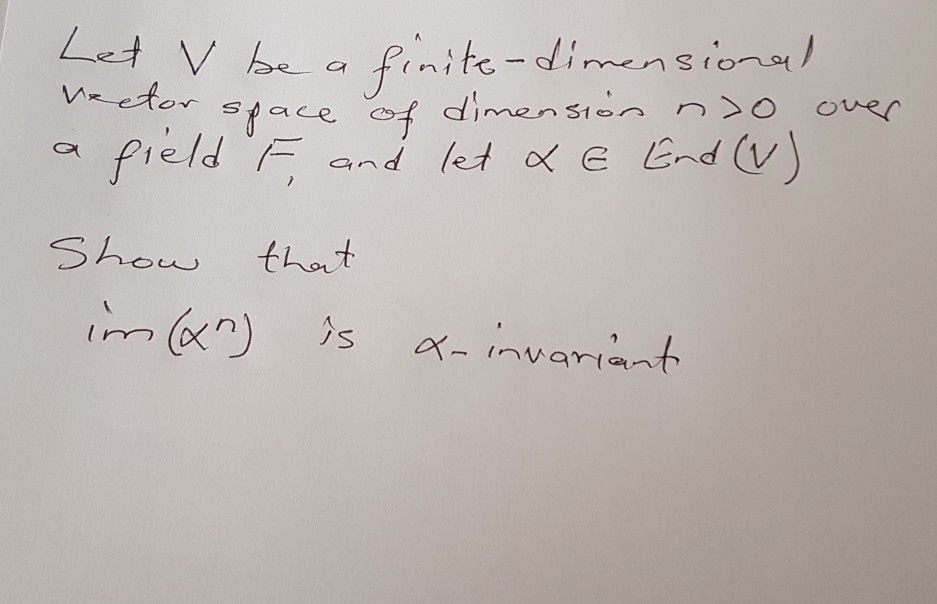 Let V be a finite-dimensional
vector space of dimension n>0 over
a field F, and let α ∈ End(V)
Show that
im(αⁿ) is α-invariant